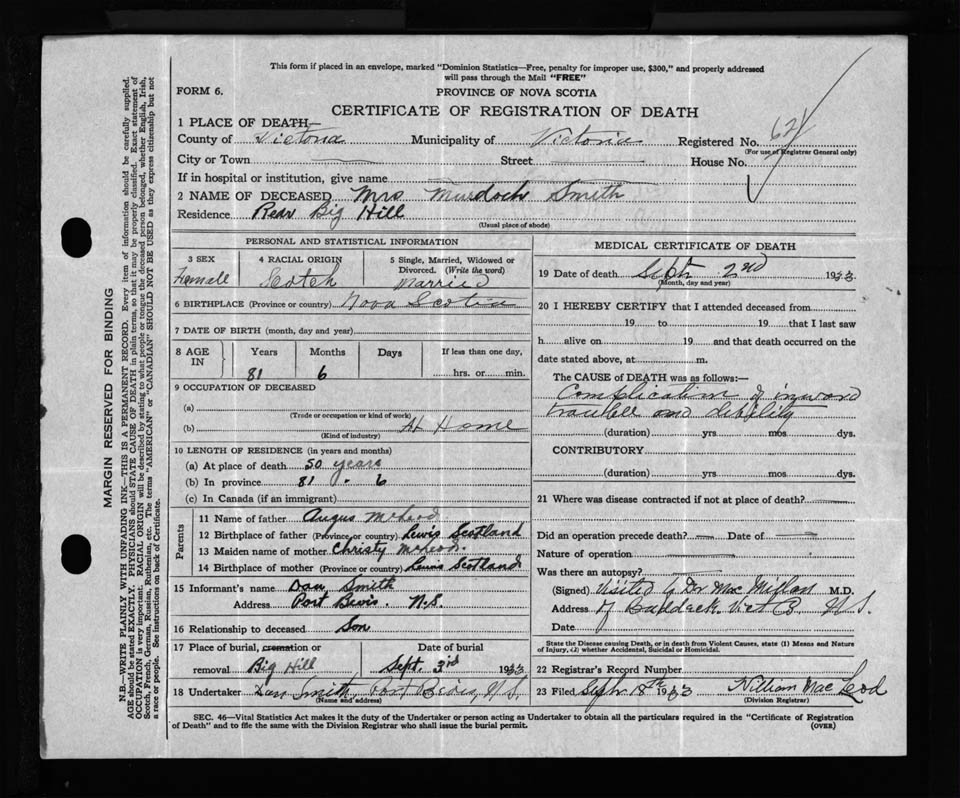 This form if placed in an envelope, marked "Dominion Statistics—Free, penalty for improper use, $300," and properly addressed
will pass through the Mail "FREE"
FORM 6.
PROVINCE OF NOVA SCOTIA
CERTIFICATE OF REGISTRATION OF DEATH
1 PLACE OF DEATH—
County of Victoria Municipality of Victoria Registered No. 624
(For use of Registrar General only)
City or Town Street House No.
If in hospital or institution, give name
2 NAME OF DECEASED Mrs Murdoch Smith
Residence Rear Big Hill
(Usual place of abode)
PERSONAL AND STATISTICAL INFORMATION
3 SEX 4 RACIAL ORIGIN 5 Single, Married, Widowed or
Divorced. (Write the word)
Female Scotch Married
6 BIRTHPLACE (Province or country) Nova Scotia
7 DATE OF BIRTH (month, day and year)
8 AGE IN Years Months Days If less than one day,
81 6 hrs. or min.
9 OCCUPATION OF DECEASED
(a)
(Trade or occupation or kind of work)
(b) At Home
(Kind of industry)
10 LENGTH OF RESIDENCE (in years and months)
(a) At place of death 50 years
(b) In province 81 . 6
(c) In Canada (if an immigrant)
Parents
11 Name of father Angus McLeod
12 Birthplace of father (Province or country) Lewis Scotland
13 Maiden name of mother Christy McLeod.
14 Birthplace of mother (Province or country) Lewis Scotland
15 Informant's name Dan Smith
Address Port Bevis. N.S.
16 Relationship to deceased Son
17 Place of burial, cremation or Date of burial
removal Big Hill Sept. 3rd 1933
18 Undertaker Dan Smith, Port Bevis, N.S.
(Name and address)
MEDICAL CERTIFICATE OF DEATH
19 Date of death Sept 2nd 1933
(Month, day and year)
20 I HEREBY CERTIFY that I attended deceased from
19 to 19 that I last saw
h alive on 19 and that death occurred on the
date stated above, at m.
The CAUSE of DEATH was as follows:—
Complication of inward
trouble and debility
(duration) yrs mos dys.
CONTRIBUTORY
(duration) yrs. mos dys.
21 Where was disease contracted if not at place of death?
Did an operation precede death? Date of
Nature of operation
Was there an autopsy?
(Signed) Visited by Dr MacMillan M.D.
Address of Baddeck Vict N.S.
Date
State the Disease causing Death, or in death from Violent Causes, state (1) Means and Nature
of Injury, (2) whether Accidental, Suicidal or Homicidal.
22 Registrar's Record Number
23 Filed Sept 18th 1933 William MacLeod
(Division Registrar)
SEC. 46—Vital Statistics Act makes it the duty of the Undertaker or person acting as Undertaker to obtain all the particulars required in the "Certificate of Registration
of Death" and to file the same with the Division Registrar who shall issue the burial permit.
(OVER)
MARGIN RESERVED FOR BINDING
N.B.—WRITE PLAINLY WITH UNFADING INK—THIS IS A PERMANENT RECORD. Every item of information should be carefully supplied.
AGE should be stated EXACTLY. PHYSICIANS should STATE CAUSE OF DEATH in plain terms, so that it may be properly classified. Exact statement of
OCCUPATION is very important. RACIAL ORIGIN will be described by stating to what people or tongue the deceased person belonged, whether English, Irish,
Scotch, French, German, Russian, Ruthenian, etc. The terms "AMERICAN" or "CANADIAN" SHOULD NOT BE USED as they express citizenship but not
a race or people. See instructions on back of Certificate.